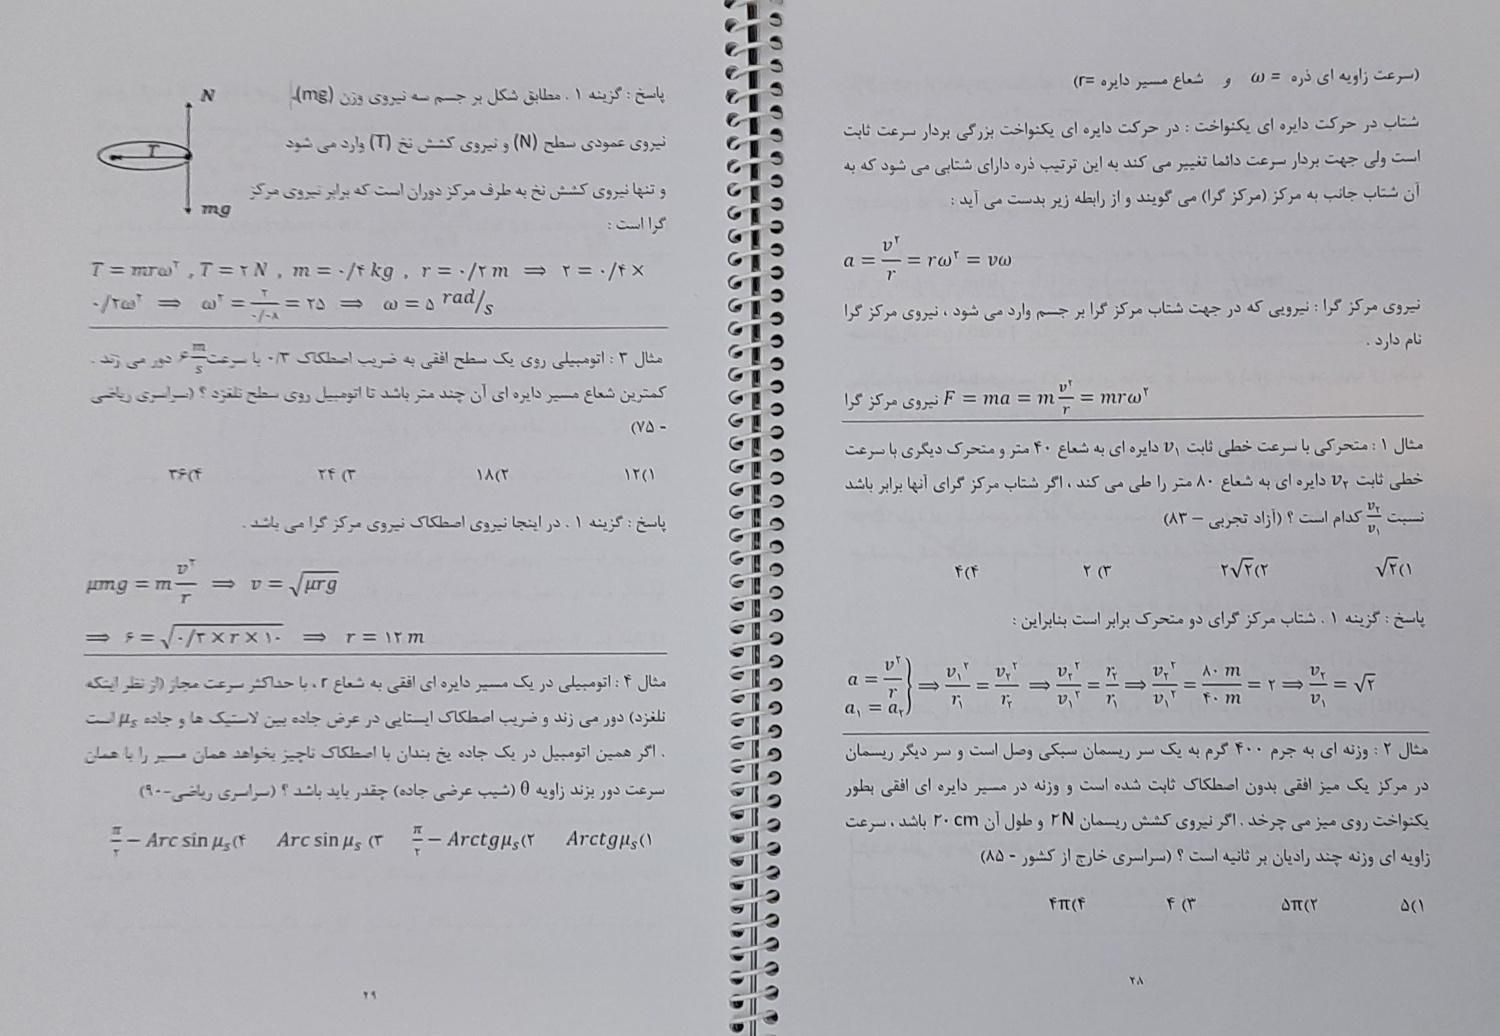 (سرعت زاویه ای ذره = ω و شعاع مسیر دایره =r)
شتاب در حرکت دایره ای یکنواخت : در حرکت دایره ای یکنواخت بزرگی بردار سرعت ثابت
است ولی جهت بردار سرعت دائما تغییر می کند به این ترتیب ذره دارای شتابی می شود که به
آن شتاب جانب به مرکز (مرکز گرا) می گویند و از رابطه زیر بدست می آید :
a = v²/r = rω² = vω
نیروی مرکز گرا : نیرویی که در جهت شتاب مرکز گرا بر جسم وارد می شود ، نیروی مرکز گرا
نام دارد .
نیروی مرکز گرا F = ma = m v²/r = mrω²
مثال ۱ : متحرکی با سرعت خطی ثابت v₁ دایره ای به شعاع ۴۰ متر و متحرک دیگری با سرعت
خطی ثابت v₂ دایره ای به شعاع ۸۰ متر را طی می کند ، اگر شتاب مرکز گرای آنها برابر باشد
نسبت v₂/v₁ کدام است ؟ (آزاد تجربی – ۸۳)
۱)√۲ ۲)۲√۲ ۳) ۲ ۴)۴
پاسخ : گزینه ۱ . شتاب مرکز گرای دو متحرک برابر است بنابراین :
a = v²/r , a₁ = a₂ } ⇒ v₁²/r₁ = v₂²/r₂ ⇒ v₂²/v₁² = r₂/r₁ ⇒ v₂²/v₁² = ۸۰ m/۴۰ m = ۲ ⇒ v₂/v₁ = √۲
مثال ۲ : وزنه ای به جرم ۴۰۰ گرم به یک سر ریسمان سبکی وصل است و سر دیگر ریسمان
در مرکز یک میز افقی بدون اصطکاک ثابت شده است و وزنه در مسیر دایره ای افقی بطور
یکنواخت روی میز می چرخد . اگر نیروی کشش ریسمان ۲N و طول آن ۲۰ cm باشد ، سرعت
زاویه ای وزنه چند رادیان بر ثانیه است ؟ (سراسری خارج از کشور - ۸۵)
۱)۵ ۲)۵π ۳) ۴ ۴)۴π
۲۸
پاسخ : گزینه ۱ . مطابق شکل بر جسم سه نیروی وزن (mg)،
نیروی عمودی سطح (N) و نیروی کشش نخ (T) وارد می شود
و تنها نیروی کشش نخ به طرف مرکز دوران است که برابر نیروی مرکز
گرا است :
N
T
mg
T = mrω² , T = ۲ N , m = ۰/۴ kg , r = ۰/۲ m ⇒ ۲ = ۰/۴ ×
۰/۲ω² ⇒ ω² = ۲/۰/۰۸ = ۲۵ ⇒ ω = ۵ rad/s
مثال ۳ : اتومبیلی روی یک سطح افقی به ضریب اصطکاک ۰/۳ با سرعت ۶ m/s دور می زند .
کمترین شعاع مسیر دایره ای آن چند متر باشد تا اتومبیل روی سطح نلغزد ؟ (سراسری ریاضی
- ۷۵)
۱)۱۲ ۲)۱۸ ۳) ۲۴ ۴)۳۶
پاسخ : گزینه ۱ . در اینجا نیروی اصطکاک نیروی مرکز گرا می باشد .
μmg = m v²/r ⇒ v = √μrg
⇒ ۶ = √۰/۳ × r × ۱۰ ⇒ r = ۱۲ m
مثال ۴ : اتومبیلی در یک مسیر دایره ای افقی به شعاع r ، با حداکثر سرعت مجاز (از نظر اینکه
نلغزد) دور می زند و ضریب اصطکاک ایستایی در عرض جاده بین لاستیک ها و جاده μₛ است
. اگر همین اتومبیل در یک جاده یخ بندان با اصطکاک ناچیز بخواهد همان مسیر را با همان
سرعت دور بزند زاویه θ (شیب عرضی جاده) چقدر باید باشد ؟ (سراسری ریاضی-۹۰)
۱)Arctgμₛ ۲)π/۲ − Arctgμₛ ۳) Arc sin μₛ ۴)π/۲ − Arc sin μₛ
۲۹